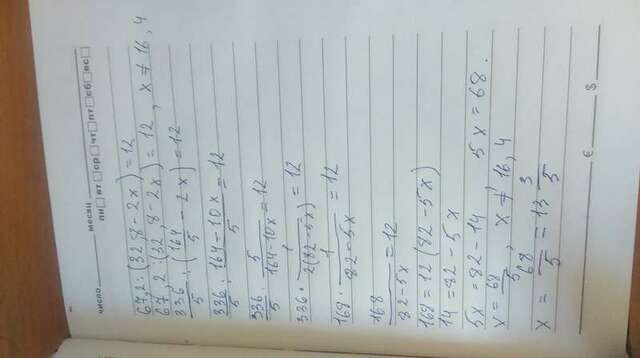 число
месяц
пн вт ср чт пт сб вс
67,2 : (32,8 - 2x) = 12
67,2 : (32,8 - 2x) = 12, x ≠ 16,4
336/5 : (164/5 - 2x) = 12
336/5 : (164-10x)/5 = 12
336/5 · 5/(164-10x) = 12
336 · 1/(2(82-5x)) = 12
168 · 1/(82-5x) = 12
168/(82-5x) = 12
168 = 12 (82 - 5x)
14 = 82 - 5x
5x = 82 - 14 5x = 68.
x = 68/5, x ≠ 16,4
x = 68/5 = 13 3/5
€ $